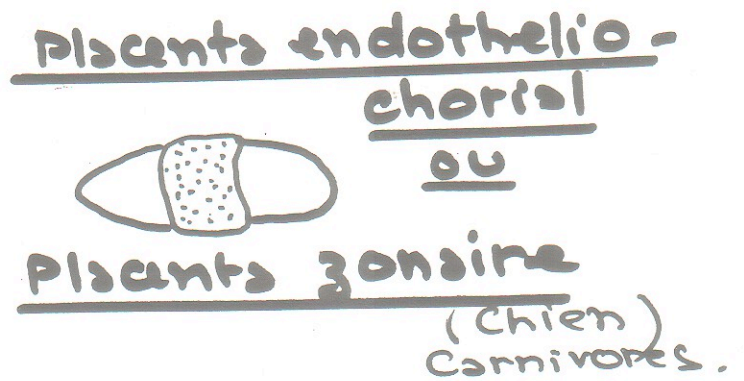 Placenta endothelio-
chorial
ou
Placenta zonaire
(Chien)
Carnivores.